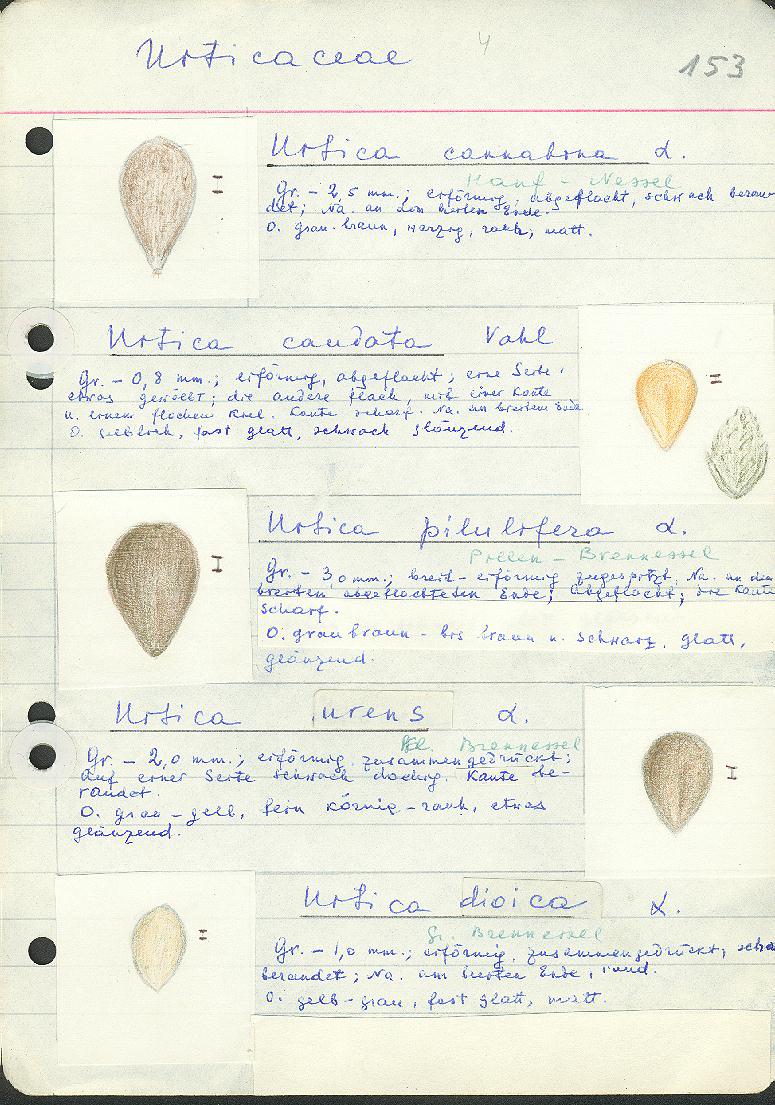 Urticaceae
4
153
Urtica cannabina L.
Hanf - Nessel
Gr. - 2,5 mm.; eiförmig, abgeflacht, schwach beran-
det; Na. an dem breiten Ende.
O. grau-braun, warzig, rauh, matt.
Urtica caudata Vahl
Gr. - 0,8 mm.; eiförmig, abgeflacht; eine Seite
etwas gewölbt; die andere flach, mit einer Kante
u. einem flachen Kiel. Kante scharf. Na. am breiten Ende
O. gelblich, fast glatt, schwach glänzend.
Urtica pilulifera L.
Pillen - Brennessel
Gr. - 3,0 mm.; breit-eiförmig zugespitzt, Na. an dem
breiten abgeflachtesen Ende; abgeflacht; die Kante
scharf.
O. graubraun - bis braun u. schwarz, glatt,
glänzend.
Urtica urens L.
Kl. Brennessel
Gr. - 2,0 mm.; eiförmig, zusammengedrückt;
auf einer Seite schwach dachig. Kante be-
randet.
O. grau - gelb, fein körnig - rauh, etwas
glänzend.
Urtica dioica L.
Gr. Brennessel
Gr. - 1,0 mm.; eiförmig, zusammengedrückt,
berandet; Na. am breiten Ende, rund.
O. gelb-grau, fast glatt, matt.